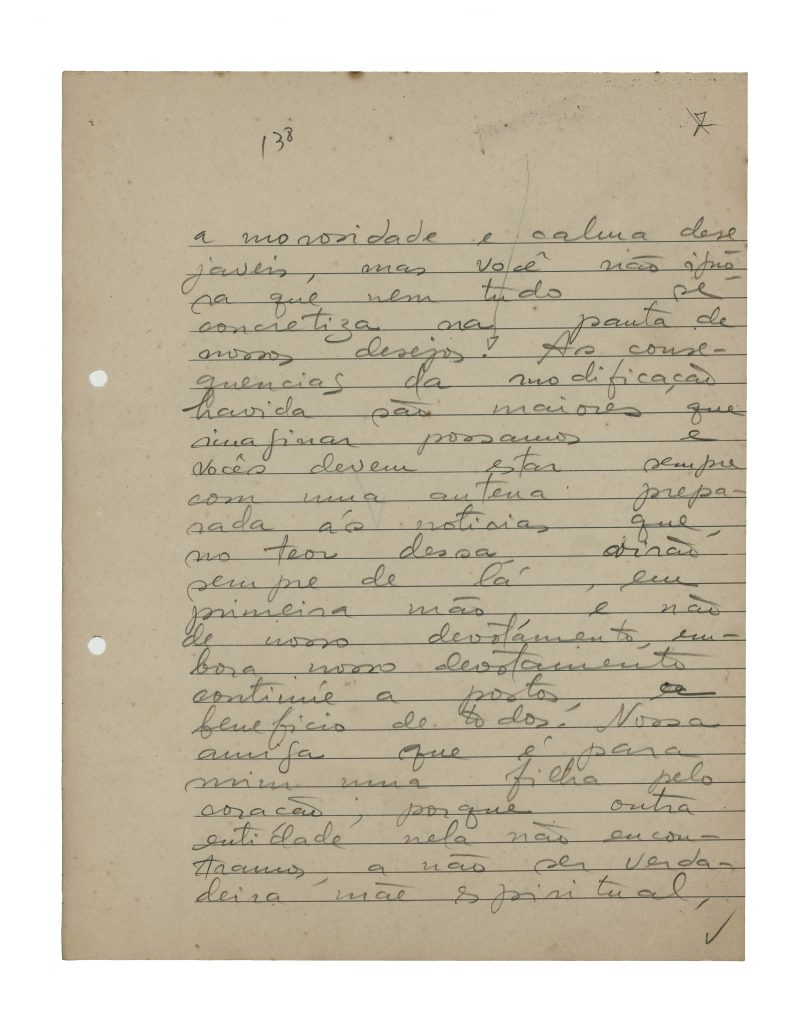 138
7
a morosidade e calma dese
javeis, mas você não igno-
ra que nem tudo se
concretiza na pauta de
nossos desejos! As conse-
quencias da modificação
havida são maiores que
imaginar possamos e
vocês devem estar sempre
com uma antena prepa-
rada ás noticias que,
no teor dessa, virão
sempre de lá, em
primeira mão e não
de nosso devotamento, em-
bora nosso devotamento
continúe a postos,
beneficio de todos. Nossa
amiga que é para
mim uma filha pelo
coração, porque outra
entidade nela não encon-
tramos, a não ser verda-
deira mãe espiritual,